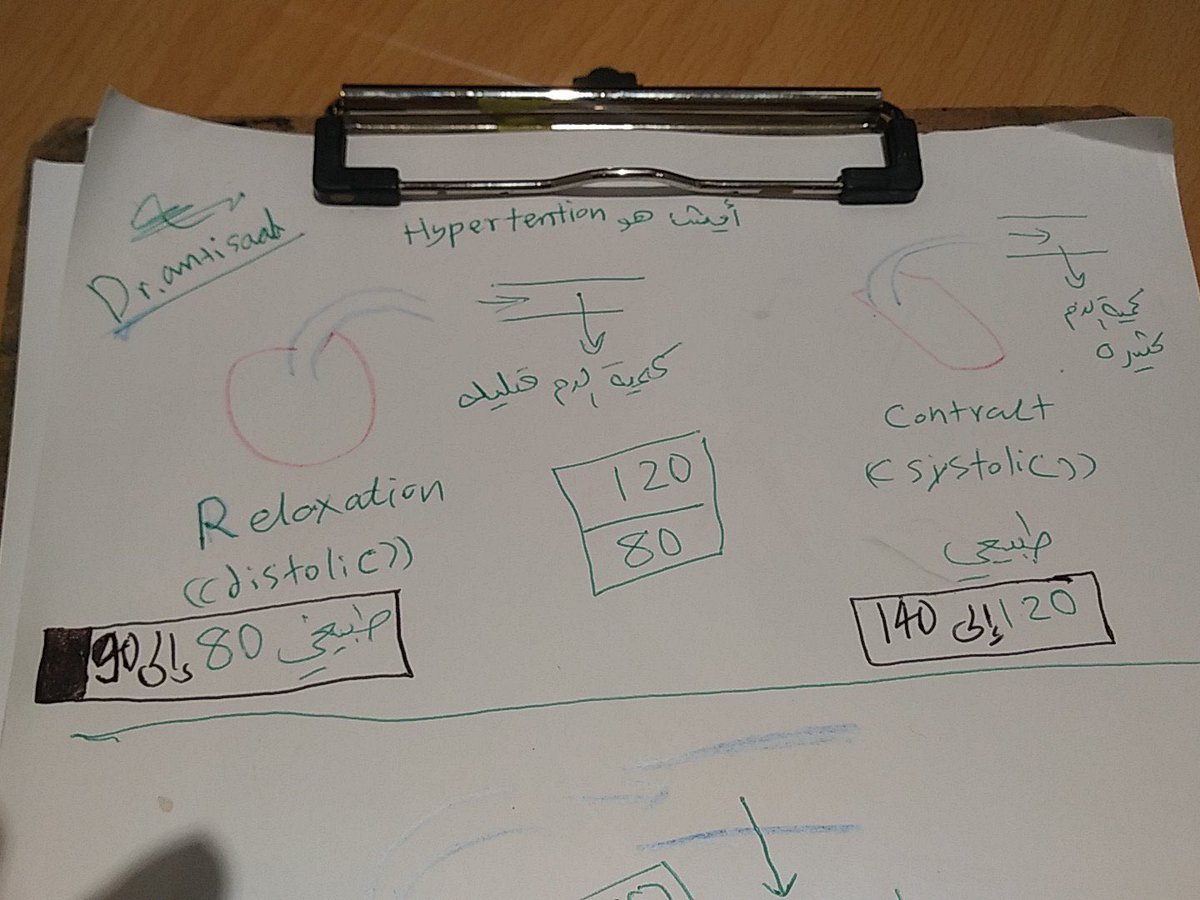 Dr.antisaah
Hypertention أيش هو
كمية الدم قليله
كمية الدم
كثيره
Reloxation
((distolic))
طبيعي 80 إلى 90
120
80
Contract
((systolic))
طبيعي
120 إلى 140